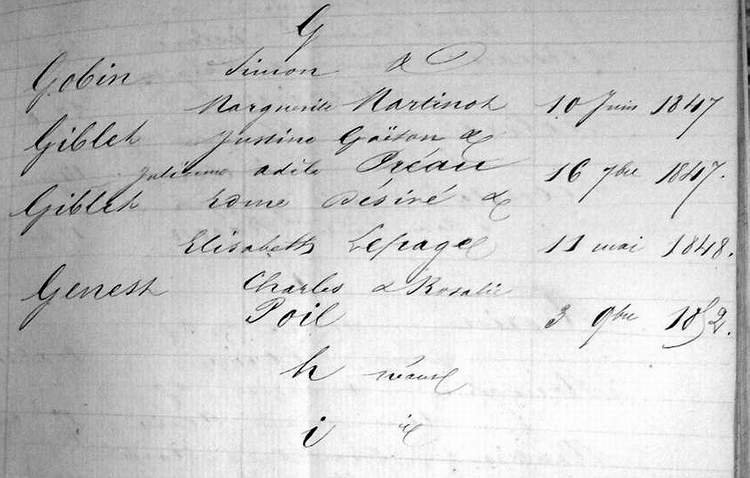 G
Gobin Simon &
Marguerite Martinot 10 Juin 1847
Giblet Justine Gaëton &
adèle Préau 16 7bre 1847.
Giblet Edme Désiré &
Elisabeth Lepage 11 mai 1848.
Genest Charles & Rosalie
Poil 3 9bre 1852.
h néant
i id